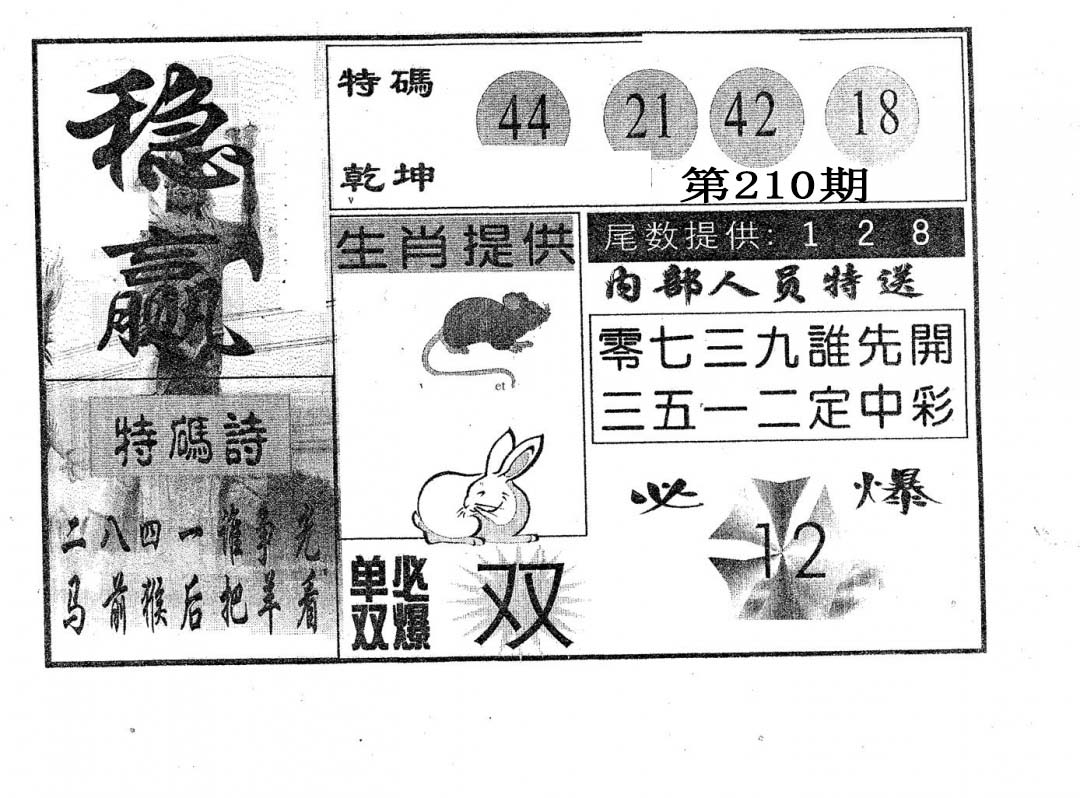 稳赢
特碼 44 21 42 18
乾坤
第210期
生肖提供
尾数提供: 1 2 8
内部人员特送
零七三九誰先開
三五一二定中彩
特碼詩
二八四一谁争先
马前猴后把羊看
必爆
12
单双必爆
双